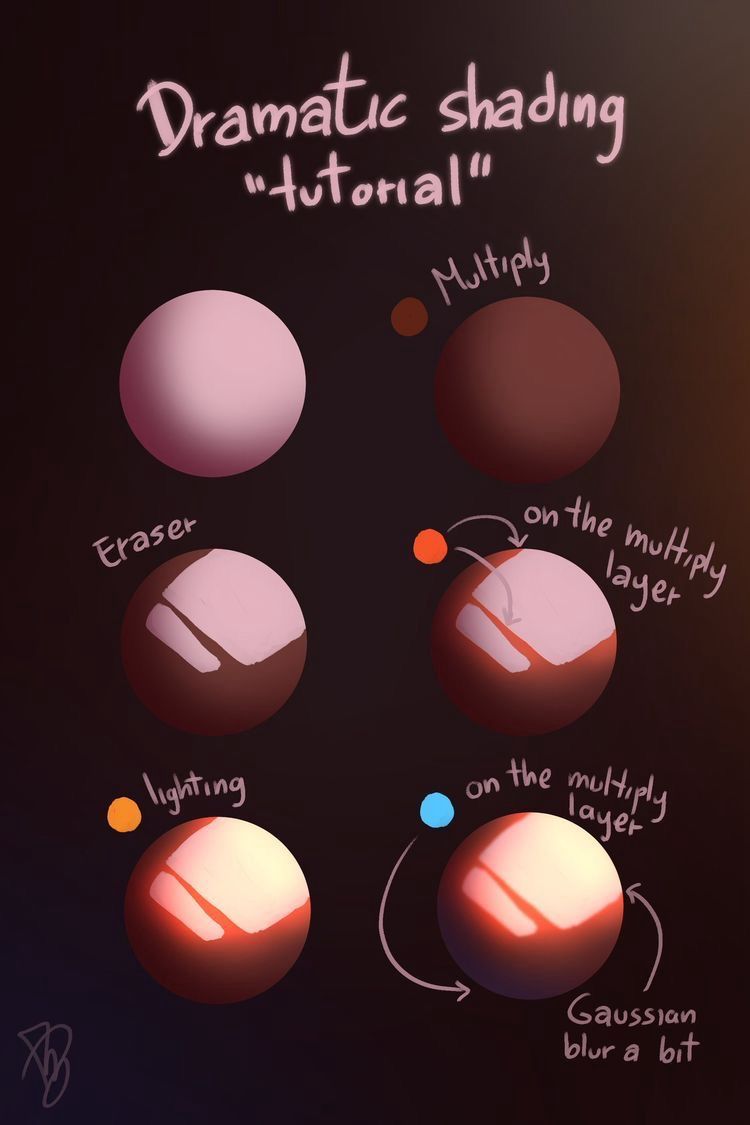 Dramatic shading
"tutorial"
Multiply
Eraser
on the multiply
layer
lighting
on the multiply
layer
Gaussian
blur a bit